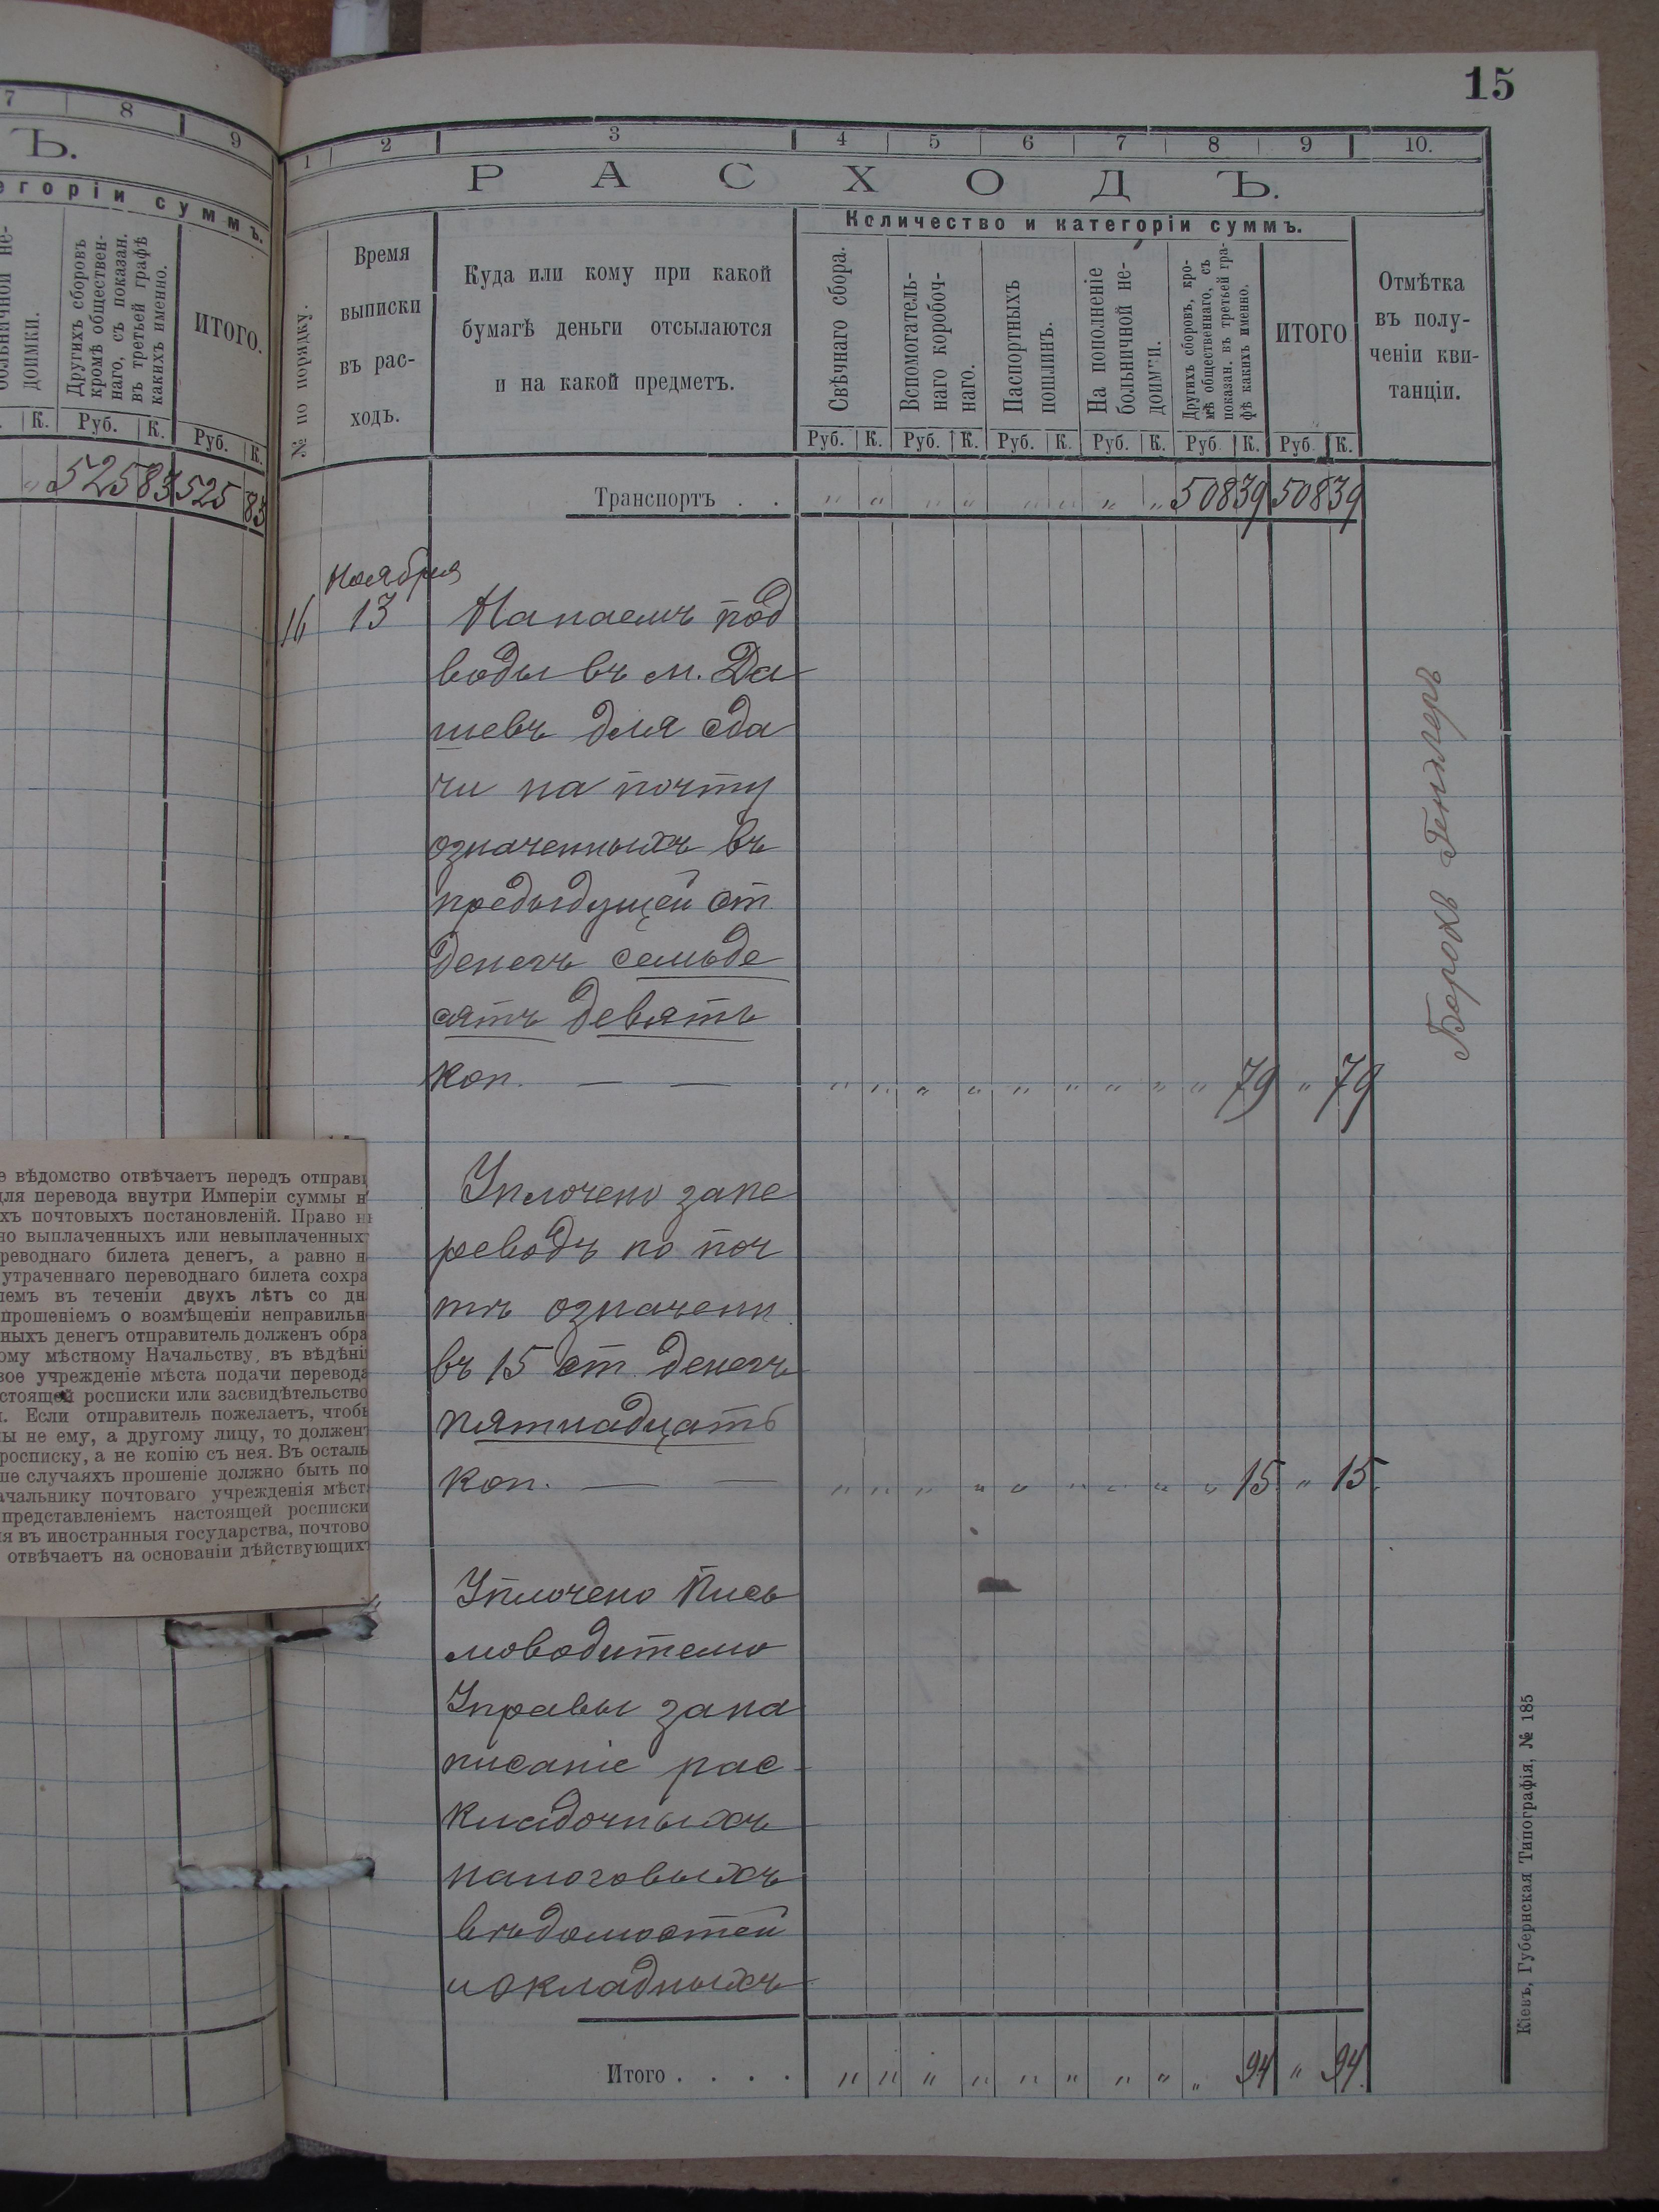 7 8 9
Ъ.
егоріи суммъ.
больничной не-
доимки.
Другихъ сборовъ
кромѣ обществен-
наго, съ показан.
въ третьей графѣ
какихъ именно.
ИТОГО.
К. Руб. К. Руб. К.
" 525 83 525 83
15
1 2 3 4 5 6 7 8 9 10.
РАСХОДЪ.
№ по порядку.
Время
выписки
въ рас-
ходъ.
Куда или кому при какой
бумагѣ деньги отсылаются
и на какой предметъ.
Количество и категоріи суммъ.
Свѣчнаго сбора.
Вспомогатель-
наго коробоч-
наго.
Паспортныхъ
пошлинъ.
На пополненіе
больничной не-
доимки.
Другихъ сборовъ, кро-
мѣ общественнаго, съ
показан. въ третьей гра-
фѣ какихъ именно.
ИТОГО
Отмѣтка
въ полу-
ченіи кви-
танціи.
Руб. К. Руб. К. Руб. К. Руб. К. Руб. К. Руб. К.
Транспортъ . . " " " " " " " " 508 39 508 39
Ноября
16 13 Нанаемъ под
воды въ м. Да
шевъ для сда
чи на почту
означенныхъ въ
предыдущей ст
денегъ семьде
сятъ девять
коп. — — " " " " " " " " " 79 " 79
Уплочено запе
реводъ по поч
тѣ означенн
въ 15 ст. денегъ
пятнадцать
коп. — — " " " " " " " " " 15 " 15.
Уплочено Пись
моводителю
Управы зана
писаніе рас-
кладочныхъ
налоговыхъ
вѣдомостей
и окладныхъ
Итого . . . . " " " " " " " " " 94 " 94.
Борохъ
Кіевъ, Губернская Типографія, № 185
е вѣдомство отвѣчаетъ передъ отправ
для перевода внутри Имперіи суммы н
хъ почтовыхъ постановленій. Право н
но выплаченныхъ или невыплаченных
реводнаго билета денегъ, а равно н
утраченнаго переводнаго билета сохра
лемъ въ теченіи двухъ лѣтъ со дн
прошеніемъ о возмѣщеніи неправильн
ныхъ денегъ отправитель долженъ обра
ому мѣстному Начальству, въ вѣдѣні
вое учрежденіе мѣста подачи перевода
стоящей росписки или засвидѣтельство
. Если отправитель пожелаетъ, чтобы
ы не ему, а другому лицу, то должен
росписку, а не копію съ нея. Въ осталь
ше случаяхъ прошеніе должно быть по
ачальнику почтоваго учрежденія мѣст
представленіемъ настоящей росписки
ія въ иностранныя государства, почтово
отвѣчаетъ на основаніи дѣйствующих